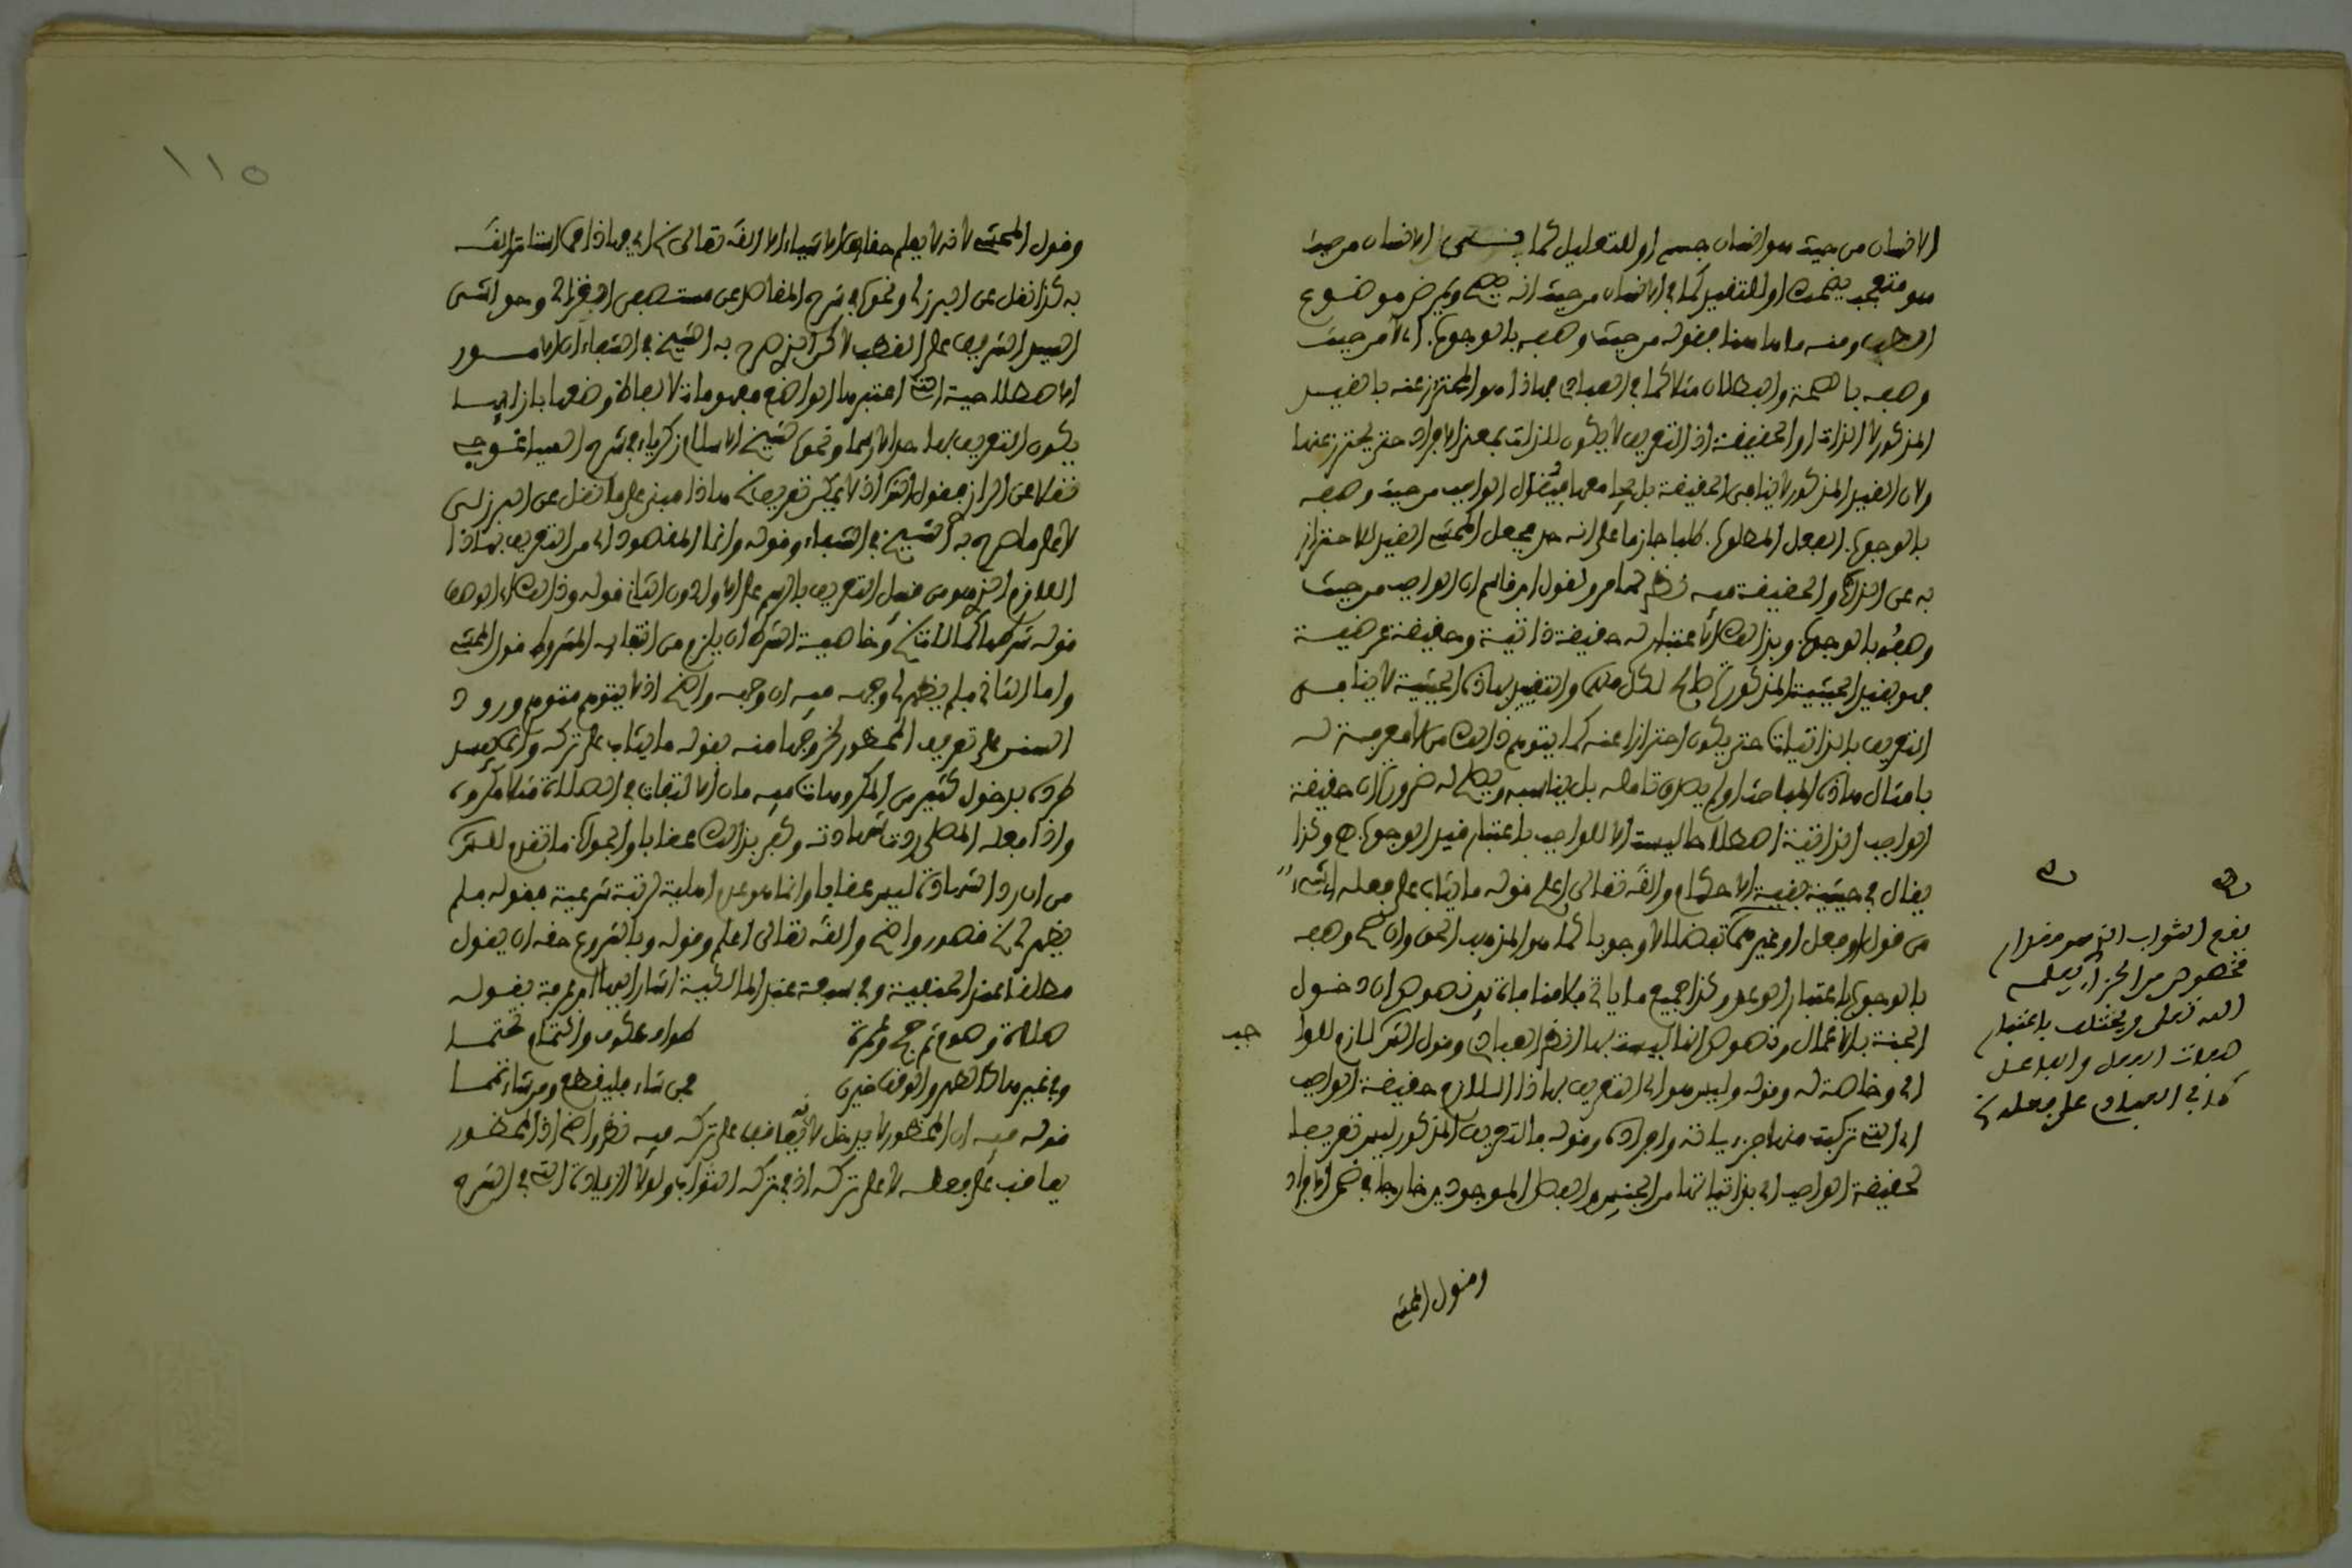 الانسان من حيث هو انسان جسم او للتعليل كما في الانسان من حيث
هو متعجب يضحك او للتقييد كما في الانسان من حيث انه يصح ويمرض موضوع
الطب ومنه ما هنا فقوله من حيث وصفه بالوجوب اي لا من حيث
وصفه بالصحة والبطلان مثلا كما في العبادة فهذا هو المحترز عنه بالقيد
المذكور لا الذات او الحقيقة اذ التعريف لا يكون للذات بمعنى الافراد حتى يحترز عنها
ولان القيد المذكور لا ينافي الحقيقة بل يجامعها فيقول الواجب من حيث وصفه
بالوجوب الفعل المطلوب طلبا جازما على انه حد فجعل المحشي القيد للاحتراز
به عن الذات والحقيقة فيه نظر كما مر ولقول ابن قاسم ان الواجب من حيث
وصفه بالوجوب وبذلك الاعتبار له حقيقة ذاتية وحقيقة عرضية
فهو بقيد الحيثية المذكورة صالح لكل منهما والتقييد بهذه الحيثية لا ينافي
التعريف بالذاتيات حتى يكون احترازا عنه كما يتوهم ذلك من لا معرفة له
بامثال هذه المباحث او لم يصدق تامله بل يناسبه ويصلح له ضرورة ان حقيقة
الواجب الذاتية اصطلاحا ليست الا للواجب باعتبار قيد الوجوب ﻫ وكذا
يقال في حيثية بقية الاحكام والله تعالى اعلم قوله ما يثاب على فعله اي الشيء
من قول او فعل او غيرهما تفضلا لا وجوبا كما هو المذهب الحق وان صح وصفه
بالوجوب باعتبار الوعد وكذا جميع ما ياتي في كلامنا فان نصوص ان دخول
الجنة بالاعمال ونصوص انه ليست بها انظر العبادي وقول الش لازم للوا جب
اي وخاصة له وقوله وليس هو اي التعريف بهذا اللازم حقيقة الواجب
اي التي تركبت منها جزئياته وافراده وقوله فالتعريف المذكور ليس تعريفا
لحقيقة الواجب اي بذاتياتها من الجنس والفصل الموجودين خارجا في ضمن الافراد
وقول المحشي
بقوم الثواب الذي هو مقدار
مخصوص من الجزاء يعلمه
الله تعلى ويختلف باعتبار
صفات الفعل والفاعل
كما في العبادي على فعله ﻫ
١١٥
وقول المحشي لانه لا يعلم حقائق الاشياء الا الله تعالى ﻫ اي فهذا مما استاثر الله
به كذا نقل عن البرزلي ونحوه في شرح المقاصد عن مستصفى الغزالي وحواشي
السيد الشريف على القطب لاكن الذي صرح به الشيخ في الشفاء ان الامور
الاصطلاحية التي اعتبر ما الواضع مفهومات لالفاظ وضعها بازائها
يكون التعريف بها حدا لا رسما ونحوه لشيخ الاسلام زكرياء في شرح ايساغوجي
نقلا عن الرازي فقول الش اذ لا يمكن تعريف ﻫ هذا مبني على ما نقل عن البرزلي
لا على ما صرح به الشيخ في الشفاء وقوله وانما المقصود اي من التعريف بهذا
اللازم الذي هو من قبيل التعريف بالرسم على الاول دون الثاني قوله وذلك الوصف
قوله شرطها كمالات ﻫ وخاصية الشرط ان يلزم من انتفائه المشروط قول المحشي
واما الثاني فلم يظهر لي وجهه فيه ان وجهه واضح اذ لا يتوهم متوهم ورود
السنن على تعريف المحظور لخروجها منه بقوله ما يثاب على تركه وانما يفسد
طرده بدخول كثير من المكروهات فيه فان الالتفات في الصلاة مثلا مكروه
واذا فعله المصلي ردت شهادته وكفى بذلك عقابا والجواب ما تقدم للش
من ان رد الشهادة ليس عقابا وانما هو عدم اهلية لرتبة شرعية فقوله فلم
يظهر لي ﻫ قصور واضح والله تعالى اعلم وقوله وبالشروع حقه ان يقول
مطلقا عند الحنفية وفي سبعة عند المالكية اشار اليها ابن عرفة بقوله
صلاة وصوم ثم حج وعمرة طواف عكوف وائتمام تحتما
وفي غيرها كالطهر والوقف خيرن فمن شاء فليقطع ومن شاء تمما
قوله فيه ان المحظور لا يدخل لانه يعاقب على تركه فيه نظر واضح اذ المحظور
يعاقب على فعله لا على تركه اذ في تركه الثواب ولولا الزيادة التي في الشرح